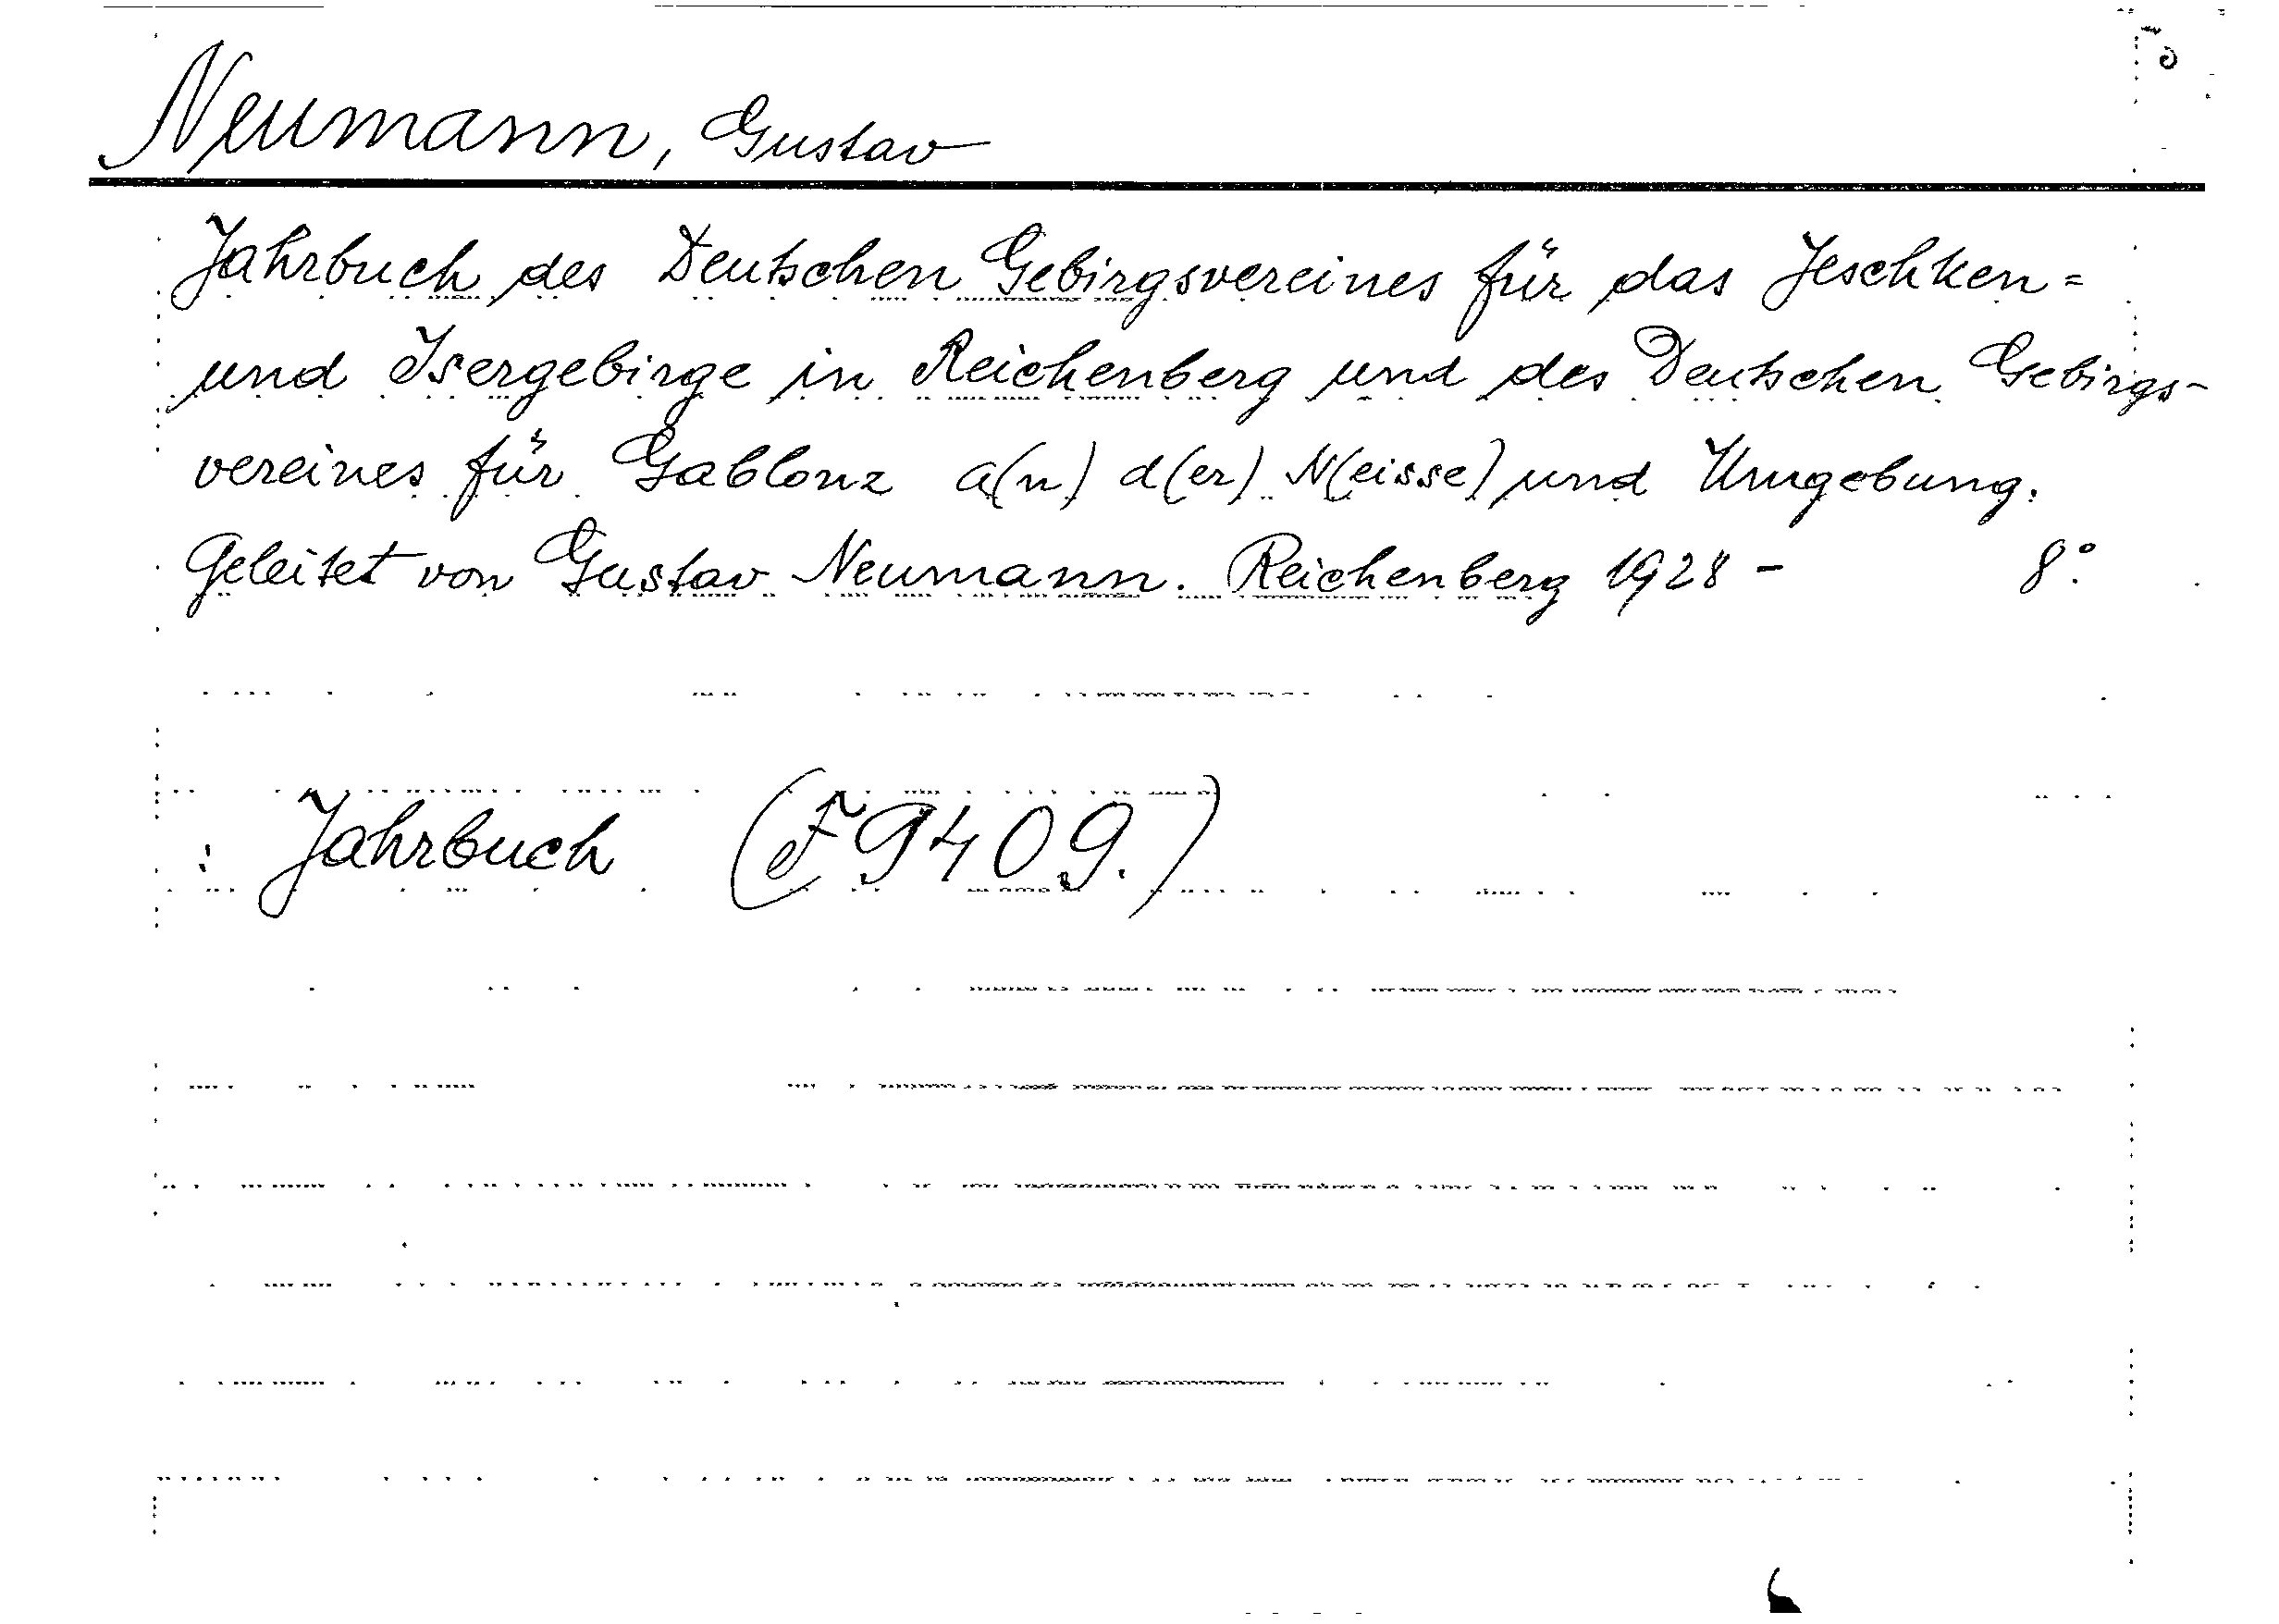 Neumann, Gustav
Jahrbuch des Deutschen Gebirgsvereines für das Jeschken=
und Isergebirge in Reichenberg und des Deutschen Gebirgs-
vereines für Gablonz a(n) d(er) N(eisse) und Umgebung.
Geleitet von Gustav Neumann. Reichenberg 1928 - 8°.
: Jahrbuch (F 9409.)